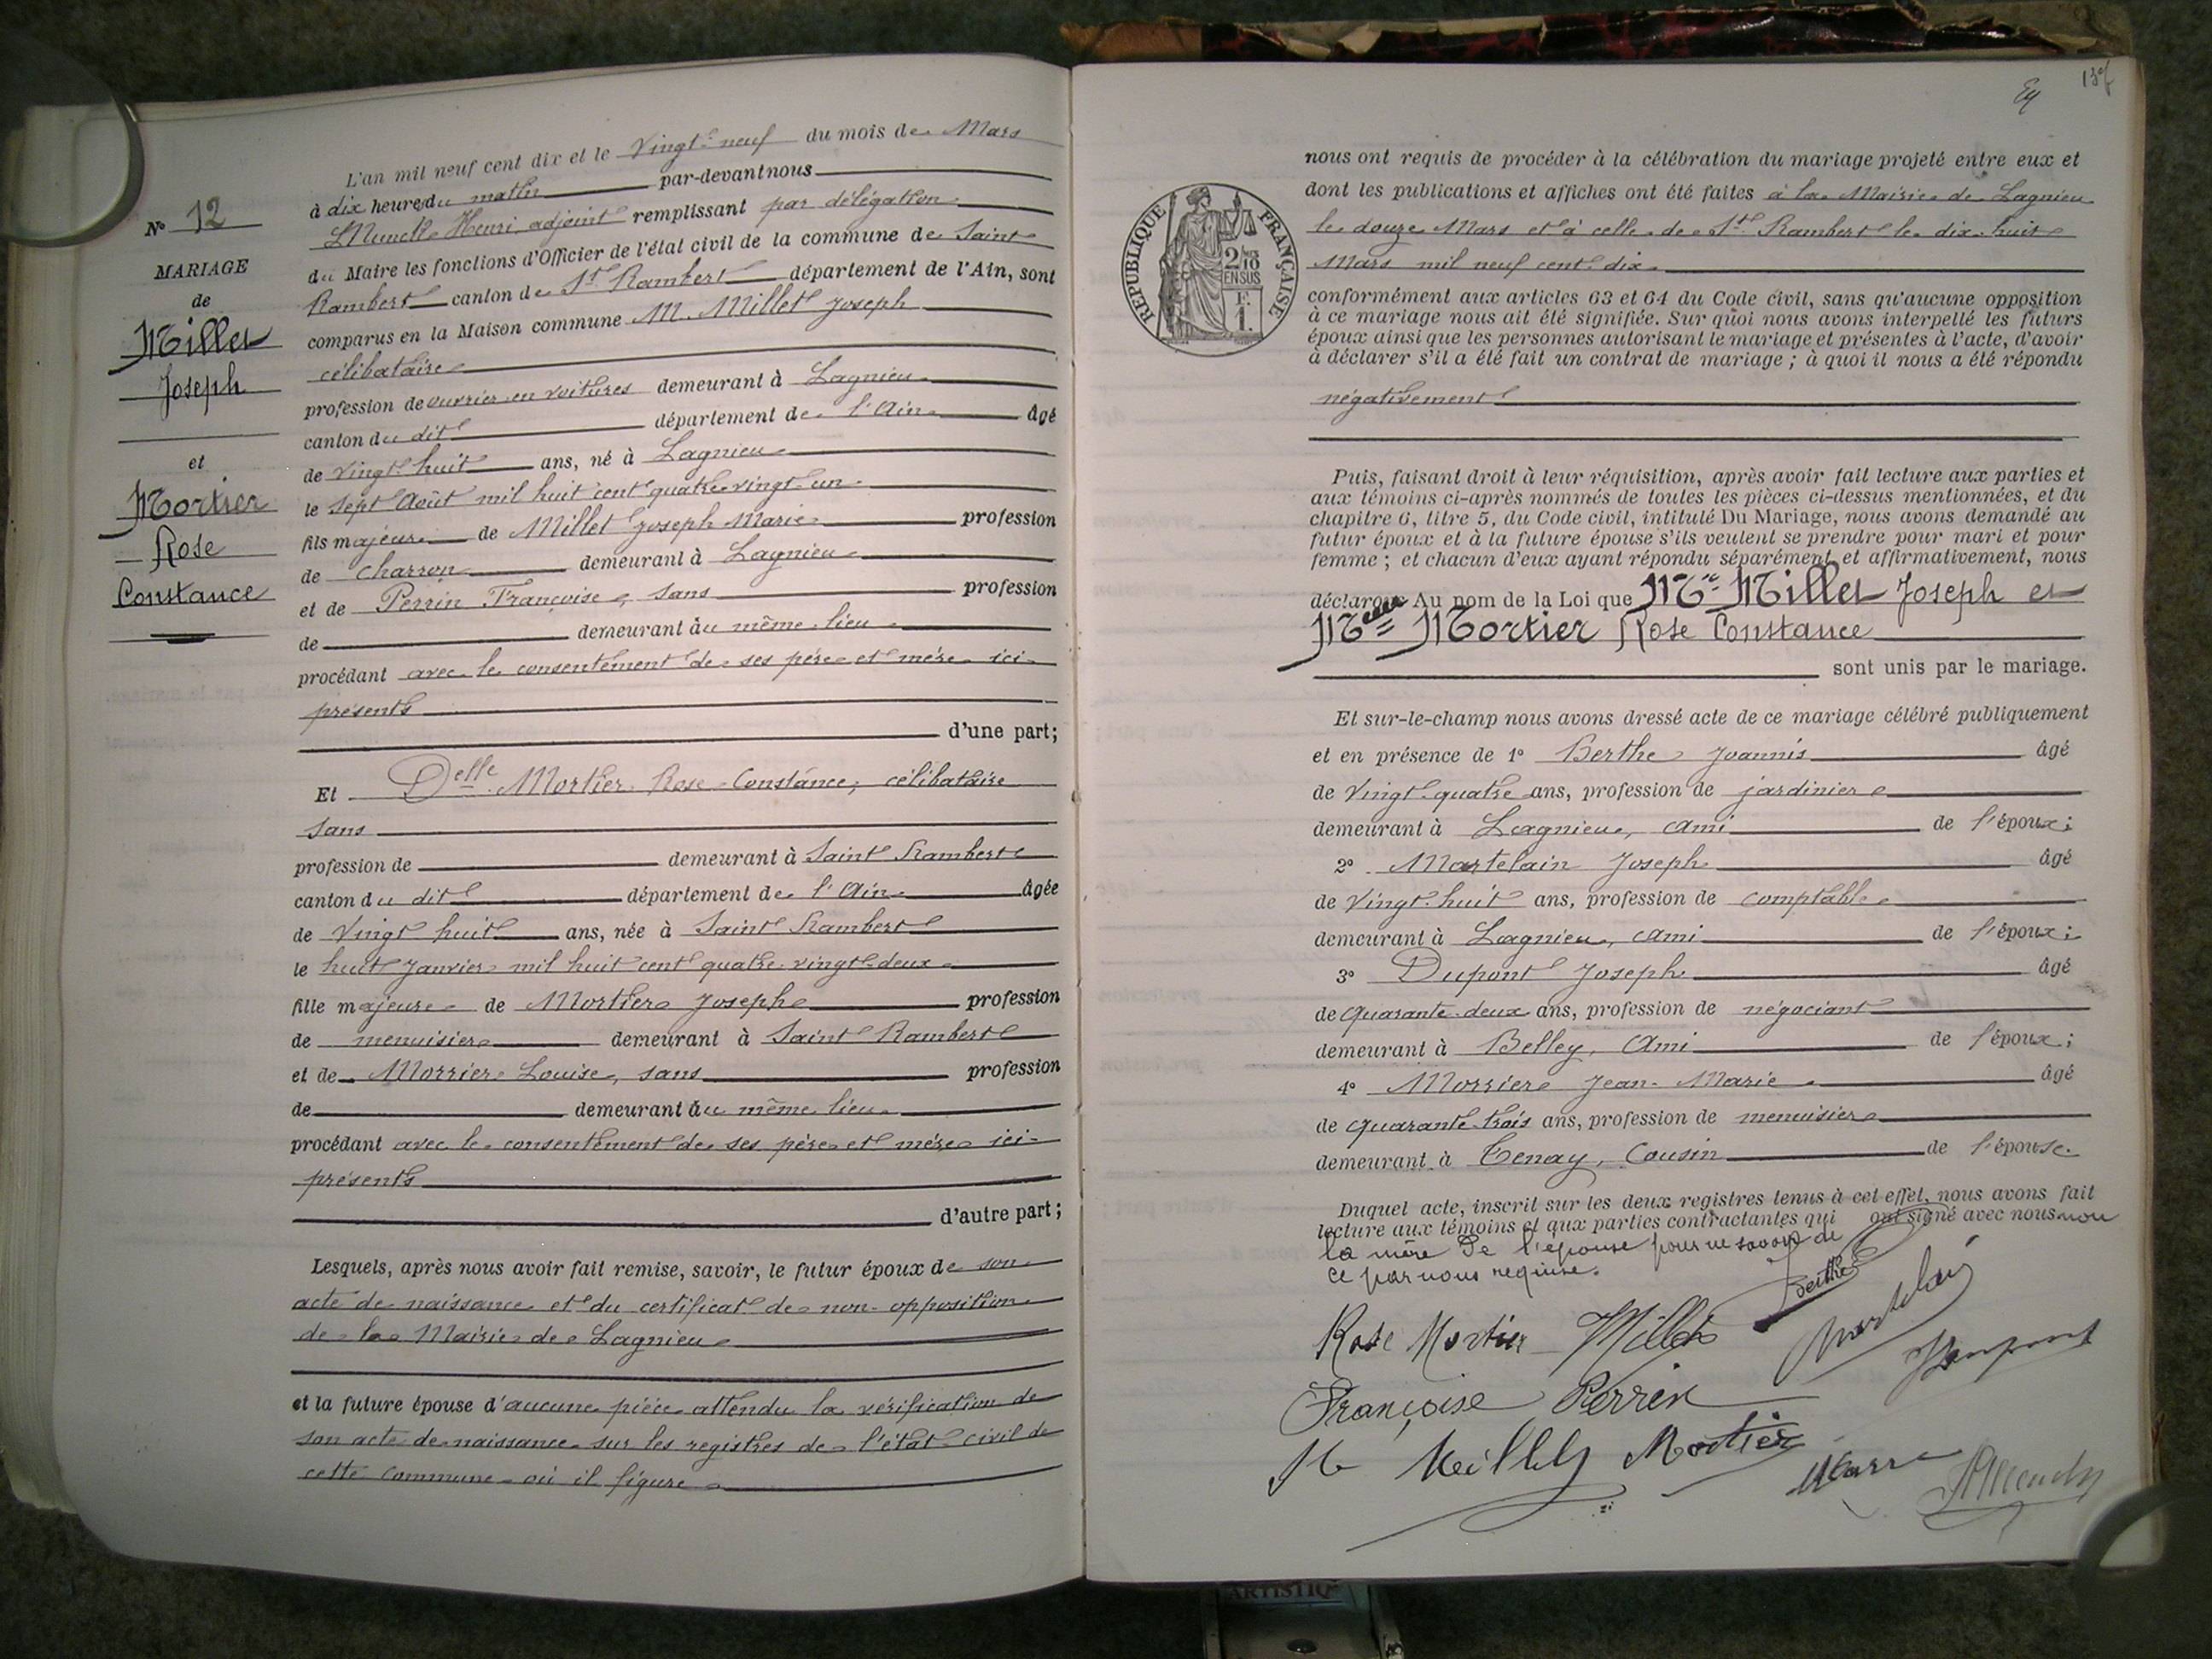 L'an mil neuf cent dix et le Vingt-neuf du mois de Mars
à dix heures du matin par-devant nous
Henri adjoint remplissant par délégation
du Maire les fonctions d'Officier de l'état civil de la commune de Saint
Rambert canton de St Rambert département de l'Ain, sont
comparus en la Maison commune M. Millet Joseph
célibataire
profession de ouvrier en voitures demeurant à Lagnieu
canton du dit département de l'Ain âgé
de vingt-huit ans, né à Lagnieu
le sept Août mil huit cent quatre-vingt-un
fils majeur de Millet Joseph Marie profession
de charron demeurant à Lagnieu
et de Perrin Françoise, sans profession
de demeurant au même lieu
procédant avec le consentement de ses père et mère ici
présents
d'une part;
Et Delle Mortier Rose Constance, célibataire
sans
profession de demeurant à Saint Rambert
canton du dit département de l'Ain âgée
de Vingt huit ans, née à Saint Rambert
le huit Janvier mil huit cent quatre-vingt-deux
fille majeure de Mortier Joseph profession
de menuisier demeurant à Saint Rambert
et de Morrier Louise, sans profession
de demeurant au même lieu
procédant avec le consentement de ses père et mère ici
présents
d'autre part;
Lesquels, après nous avoir fait remise, savoir, le futur époux de son
acte de naissance et du certificat de non-opposition
de la Mairie de Lagnieu
et la future épouse d'aucune pièce attendu la vérification de
son acte de naissance sur les registres de l'état civil de
cette commune où il figure
No 12
MARIAGE
de
Millet
Joseph
et
Mortier
Rose
Constance
RÉPUBLIQUE FRANÇAISE
2/10
EN SUS
F.
1.
nous ont requis de procéder à la célébration du mariage projeté entre eux et
dont les publications et affiches ont été faites à la Mairie de Lagnieu
le douze Mars et à celle de St Rambert le dix-huit
Mars mil neuf cent dix
conformément aux articles 63 et 64 du Code civil, sans qu'aucune opposition
à ce mariage nous ait été signifiée. Sur quoi nous avons interpellé les futurs
époux ainsi que les personnes autorisant le mariage et présentes à l'acte, d'avoir
à déclarer s'il a été fait un contrat de mariage ; à quoi il nous a été répondu
négativement
Puis, faisant droit à leur réquisition, après avoir fait lecture aux parties et
aux témoins ci-après nommés de toutes les pièces ci-dessus mentionnées, et du
chapitre 6, titre 5, du Code civil, intitulé Du Mariage, nous avons demandé au
futur époux et à la future épouse s'ils veulent se prendre pour mari et pour
femme ; et chacun d'eux ayant répondu séparément et affirmativement, nous
déclarons Au nom de la Loi que Mr Millet Joseph et
Melle Mortier Rose Constance
sont unis par le mariage.
Et sur-le-champ nous avons dressé acte de ce mariage célébré publiquement
et en présence de 1o Berthe Joannis âgé
de Vingt-quatre ans, profession de jardinier
demeurant à Lagnieu, ami de l'époux;
2o Martelain Joseph âgé
de Vingt-huit ans, profession de comptable
demeurant à Lagnieu, ami de l'époux;
3o Dupont Joseph âgé
de quarante-deux ans, profession de négociant
demeurant à Belley, Ami de l'époux;
4o Morrier Jean-Marie âgé
de quarante-trois ans, profession de menuisier
demeurant à Tenay, Cousin de l'épouse.
Duquel acte, inscrit sur les deux registres tenus à cet effet, nous avons fait
lecture aux témoins et aux parties contractantes qui ont signé avec nous non
la mère de l'épouse pour ne savoir de
ce par nous requise.
Berthe
Rose Mortier Millet
Françoise Perrin
Mortier
ARTISTIQ